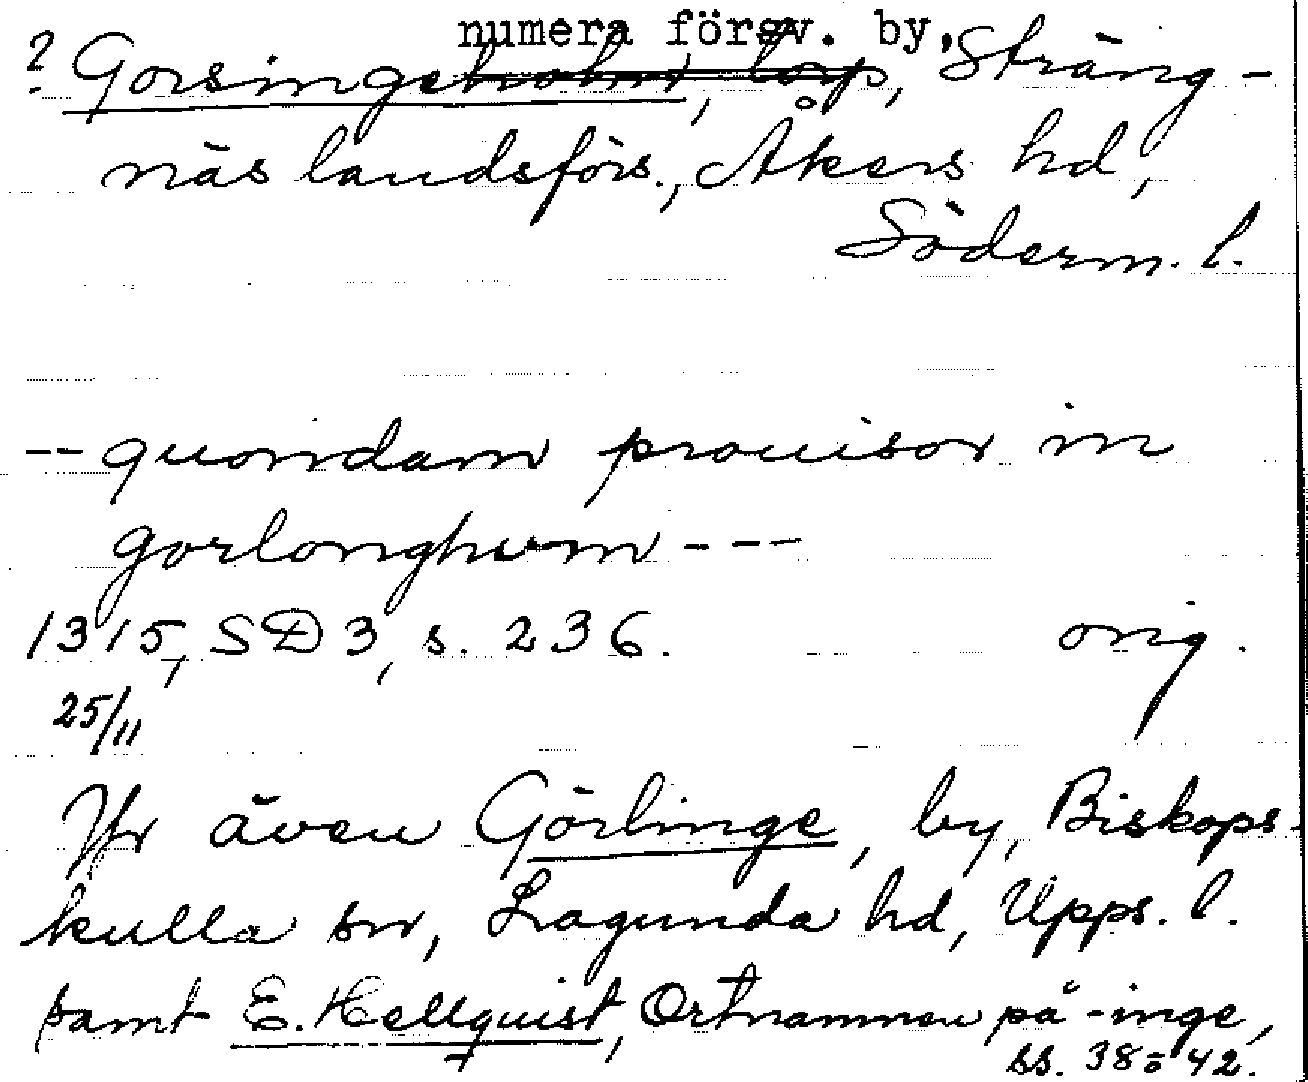 numera försv. by,
? Gorsingeholm, torp, Sträng-
näs landsförs., Åkers hd,
Söderm. l.
-- quondam prouisor in
gorlonghum ---
1315, SD 3, s. 236. orig.
25/11
Jfr även Görlinge, by, Biskops-
kulla sn, Lagunda hd, Upps. l.
samt E. Hellquist, Ortnamnen på -inge,
ss. 38 o 42.